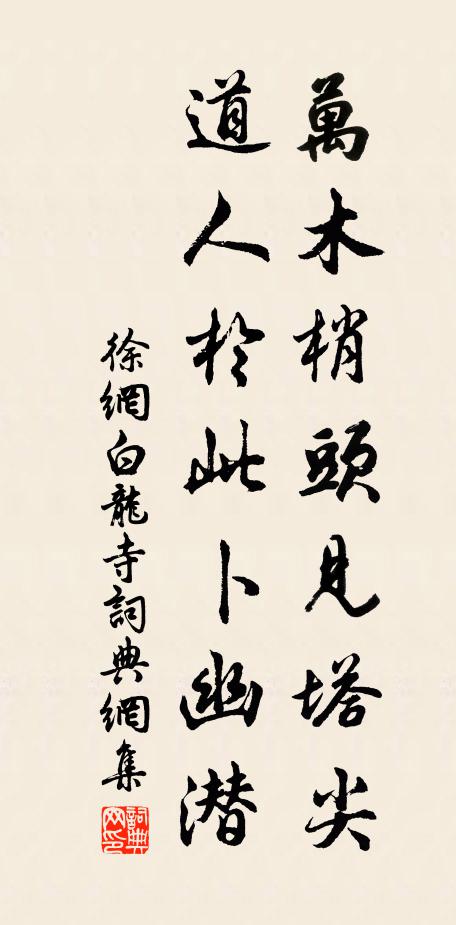 萬木梢頭見塔尖
道人於此卜幽潜
徐網白龍寺詞典網集
詞典网印